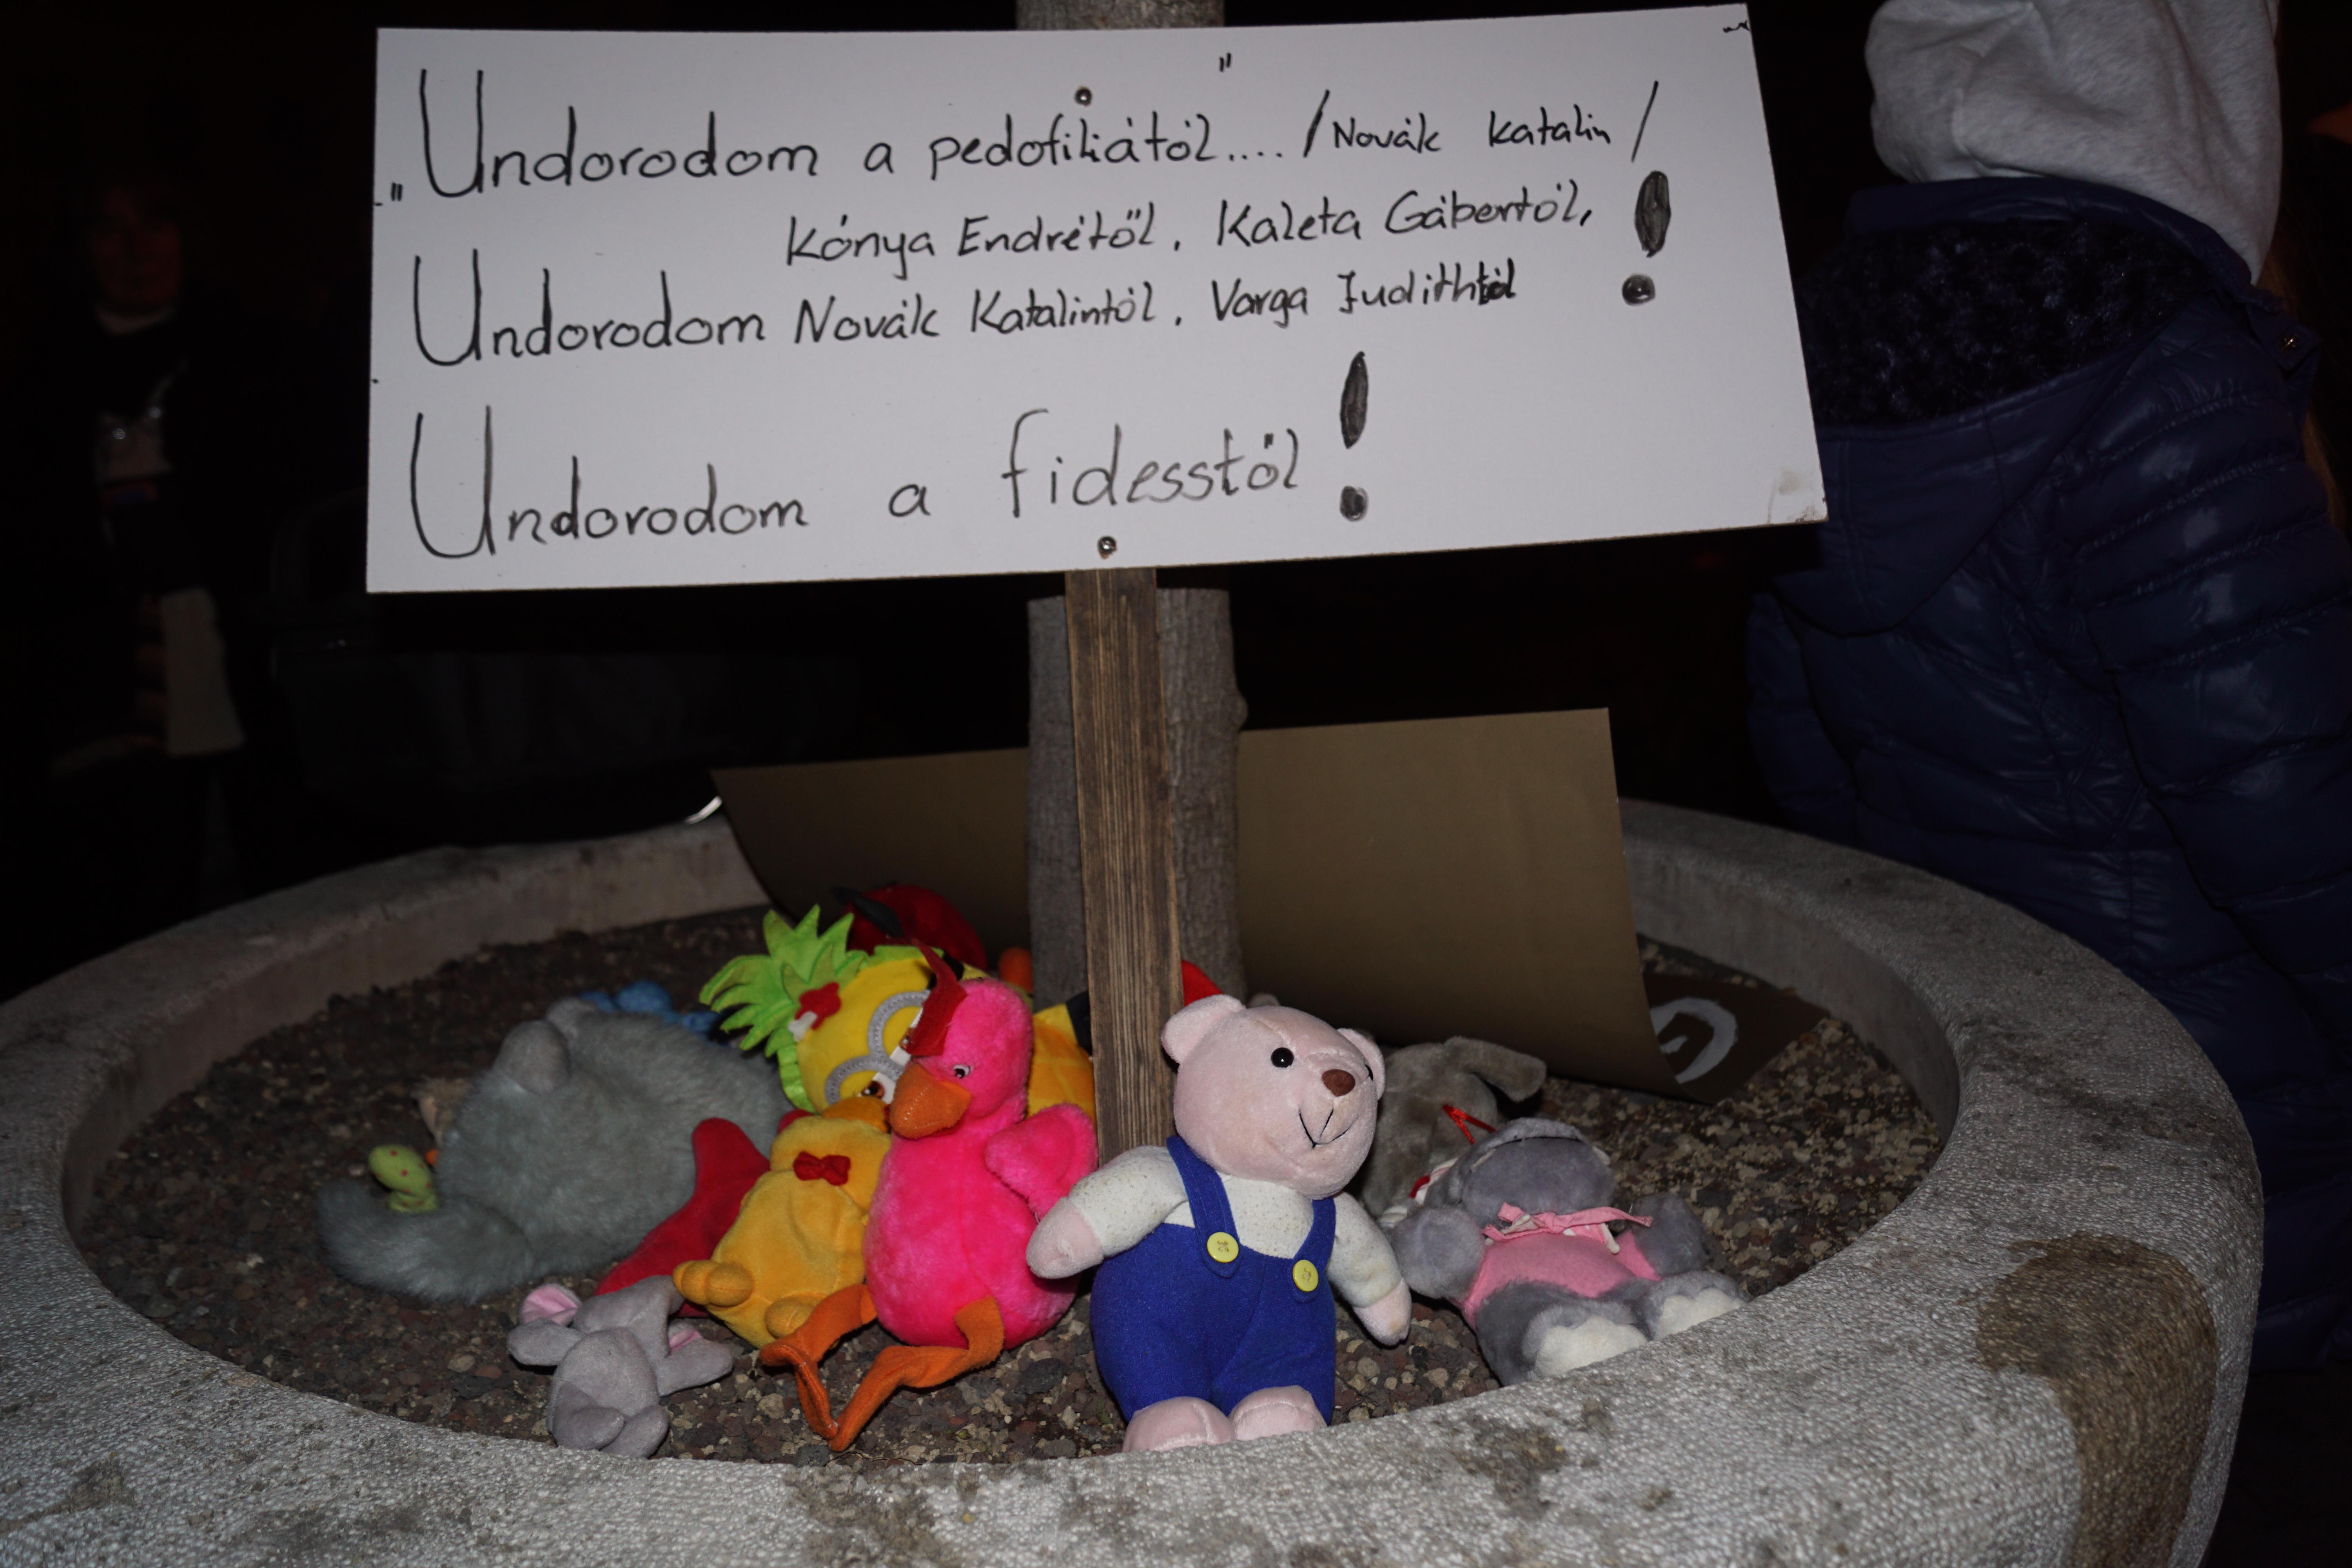 „Undorodom a pedofiliától...." /Novák Katalin/
Kónya Endrétől, Kaleta Gábortól,
Undorodom Novák Katalintól, Varga Judithtól !
Undorodom a fidesstől !
G